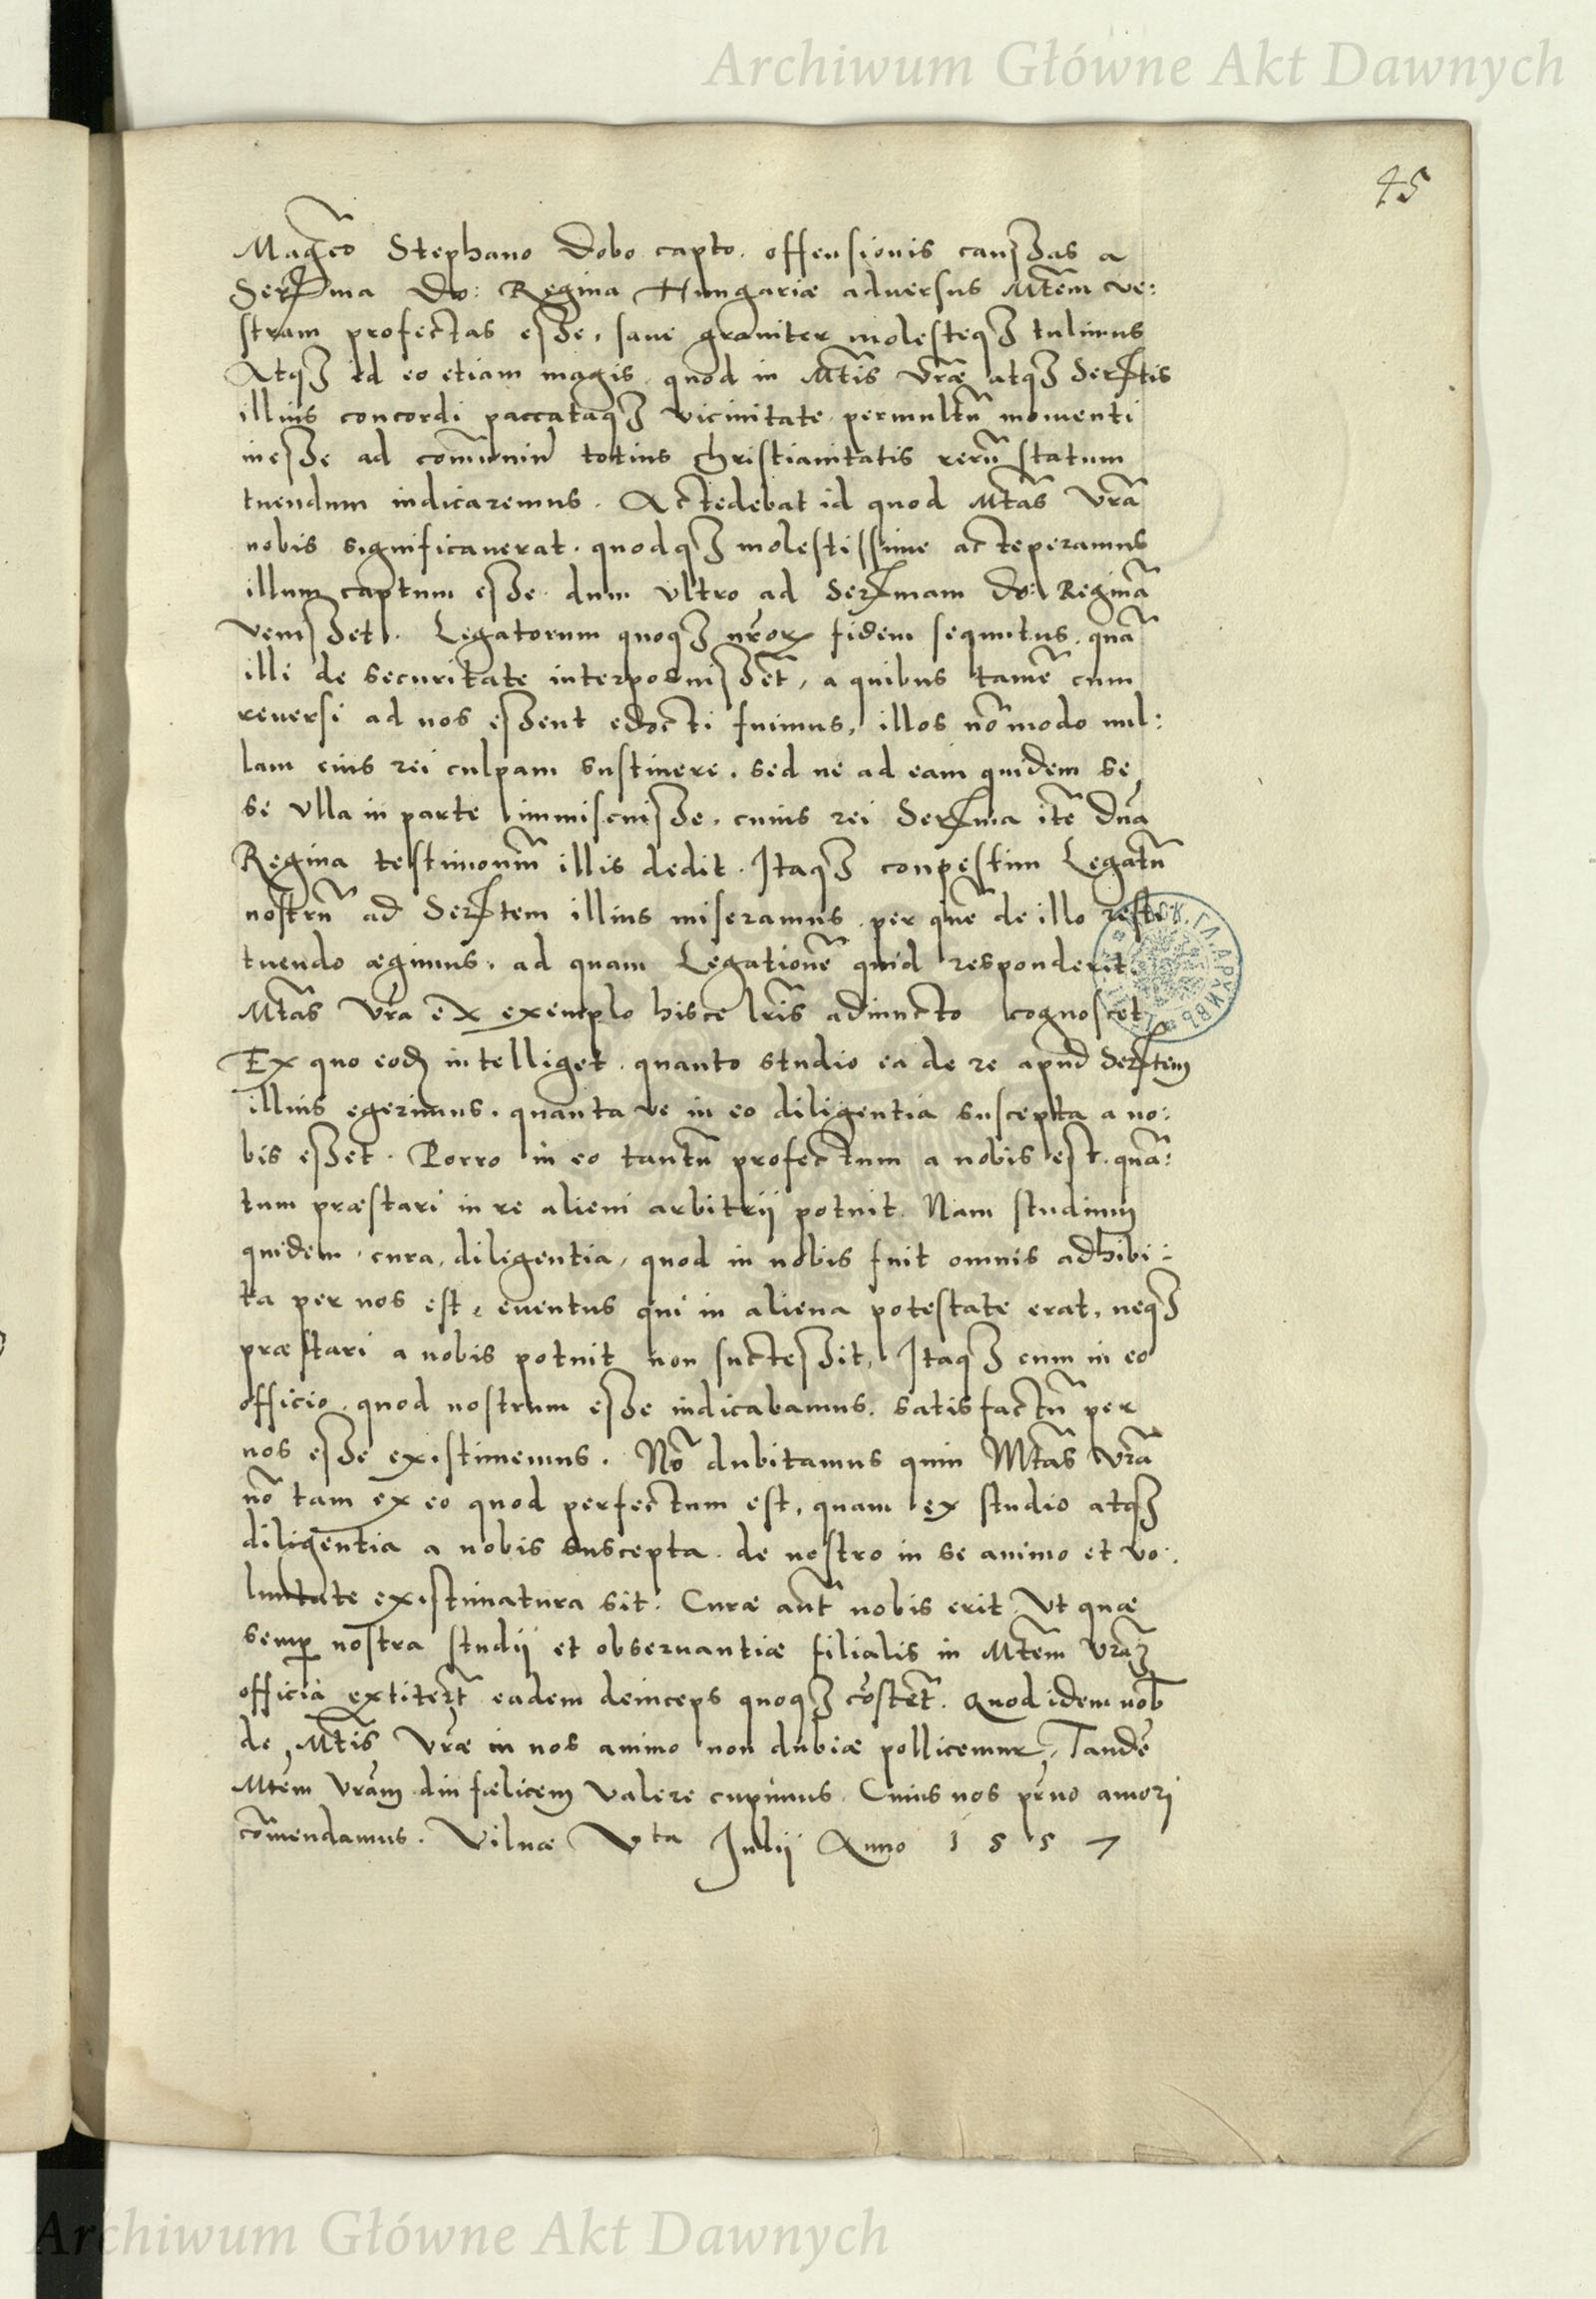 Archiwum Główne Akt Dawnych
45
Magco Stephano Dobo capto. offensionis caussas a
Serma Do: Regina Hungariæ aduersus Mtem ve:
stram profectas esse, sane grauiter molesteq3 tulimus
Atq3 id eo etiam magis quod in Mtis Vræ atq3 Sertis
illius concordi paccataq3 vicinitate permultũ momenti
inesse ad comũniũ totius christianitatis rerũ statum
tuendum iudicaremus. Accedebat id quod Mtas Vrã
nobis significauerat. quodq3 molestissime acceperamus
illum captum esse dum vltro ad Sermam Do: Reginã
venisset. Legatorum quoq3 nror fidem sequutus, quã
illi de securitate interposuissẽt, a quibus tamẽ cum
reuersi ad nos essent edocti fuimus, illos nõ modo nul:
lam eius rei culpam sustinere, sed ne ad eam quidem se
se vlla in parte immiscuisse, cuius rei Serma itẽ Dna
Regina testimoniũ illis dedit. Itaq3 conpestim Legatũ
nostrũ ad Sertem illius miseramus per quẽ de illo resti
tuendo ægimus, ad quam Legationẽ quid responderit.
Mtas Vra ex exemplo hisce lris adiuncto cognoscet
Ex quo eod intelliget quanto studio ea de re apud Sertem
illius egerimus, quanta ve in eo diligentia suscepta a no:
bis esset. Porro in eo tantũ profectum a nobis est. quã:
tum præstari in re alieni arbitrij potuit. Nam studium
quidem, cura, diligentia, quod in nobis fuit omnis adhibi:
ta per nos est, euentus qui in aliena potestate erat, neq3
præstari a nobis potuit non successit, Itaq3 cum in eo
officio, quod nostrum esse iudicabamus, satisfactũ per
nos esse existimemus. Nõ dubitamus quin Mtas Vrã
nõ tam ex eo quod perfectum est, quam ex studio atq3
diligentia a nobis suscepta de nostro in se animo et vo:
luntate existimatura sit. Curæ aut nobis erit Vt quæ
semp nostra studij et obseruantiæ filialis in Mtem Vram
officia extitert eadem deinceps quoq3 cõstẽt. Quod idem nob
de Mtis Vræ in nos animo non dubiæ pollicemur, Tandẽ
Mtem Vram diu fælicem valere cupimus. Cuius nos prno amori
cõmendamus. Vilnæ Vta Julij Anno 1557
Archiwum Główne Akt Dawnych